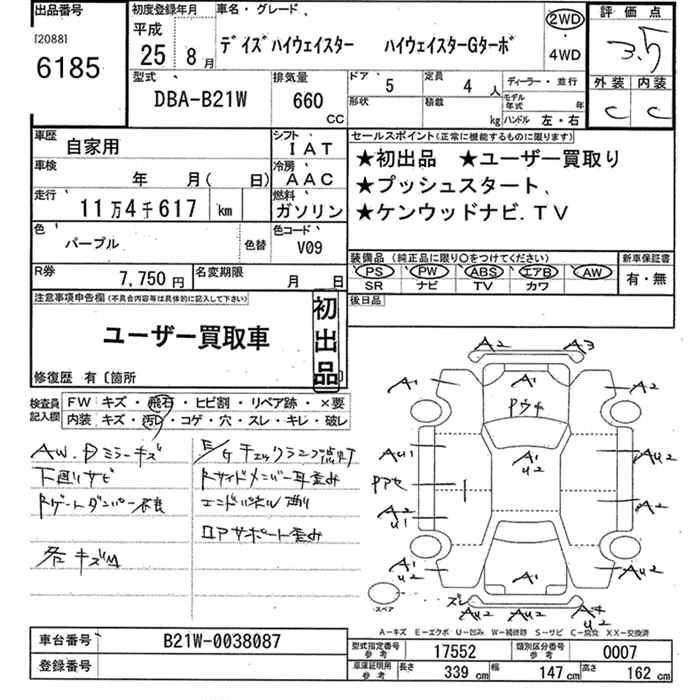 出品番号
[2088]
6185
初度登録年月
平成
25年 8月
車名・グレード
デイズハイウェイスター ハイウェイスターGターボ
2WD
・
4WD
評価点
3.5
外装 内装
C C
型式
DBA-B21W
排気量
660
CC
ドア 5
定員 4人
形状
積載 kg
ディーラー・並行
モデル年式 年
ハンドル 左・右
車歴 自家用
シフト IAT
車検 年 月( 日)
冷房 AAC
走行 11万4千617 km
燃料 ガソリン
色 パープル
色替
色コード V09
R券 7,750円
名変期限 月 日
セールスポイント(正常に機能するものに限ります)
★初出品 ★ユーザー買取り
★プッシュスタート、
★ケンウッドナビ.TV
装備品(純正品に限り○をつけてください)
PS PW ABS エアB AW
SR ナビ TV カワ
新車保証書
有・無
後日品
注意事項申告欄(不具合内容等は具体的に記入して下さい)
ユーザー買取車
初出品
修復歴 有〔箇所 〕
検査員記入欄
FW キズ・飛石・ヒビ割・リペア跡・×要
内装 キズ・汚レ・コゲ・穴・スレ・キレ・破レ
AW.Dミラーキズ
下廻りサビ
Rゲートダンパー不良
各キズM
E/Gチェックランプ点灯
Rサイドメンバー耳歪み
エンドパネル凹
ロアサポート歪み
A2 A3
A1 A1 A2
Pウチ
AU1 A1 U2 AU2
Pアセ
A2 U1 A2
A1 U2 A1 AU2
ズレ AU2 AU2 A4 U2
・スペア
A-キズ E-エクボ U-凹み W-補修跡 S-サビ C-腐食 XX-交換済
車台番号 B21W-0038087
登録番号
型式指定番号 参考 17552
類別区分番号 参考 0007
車庫証明用 参考
長さ 339 cm 幅 147 cm 高さ 162 cm